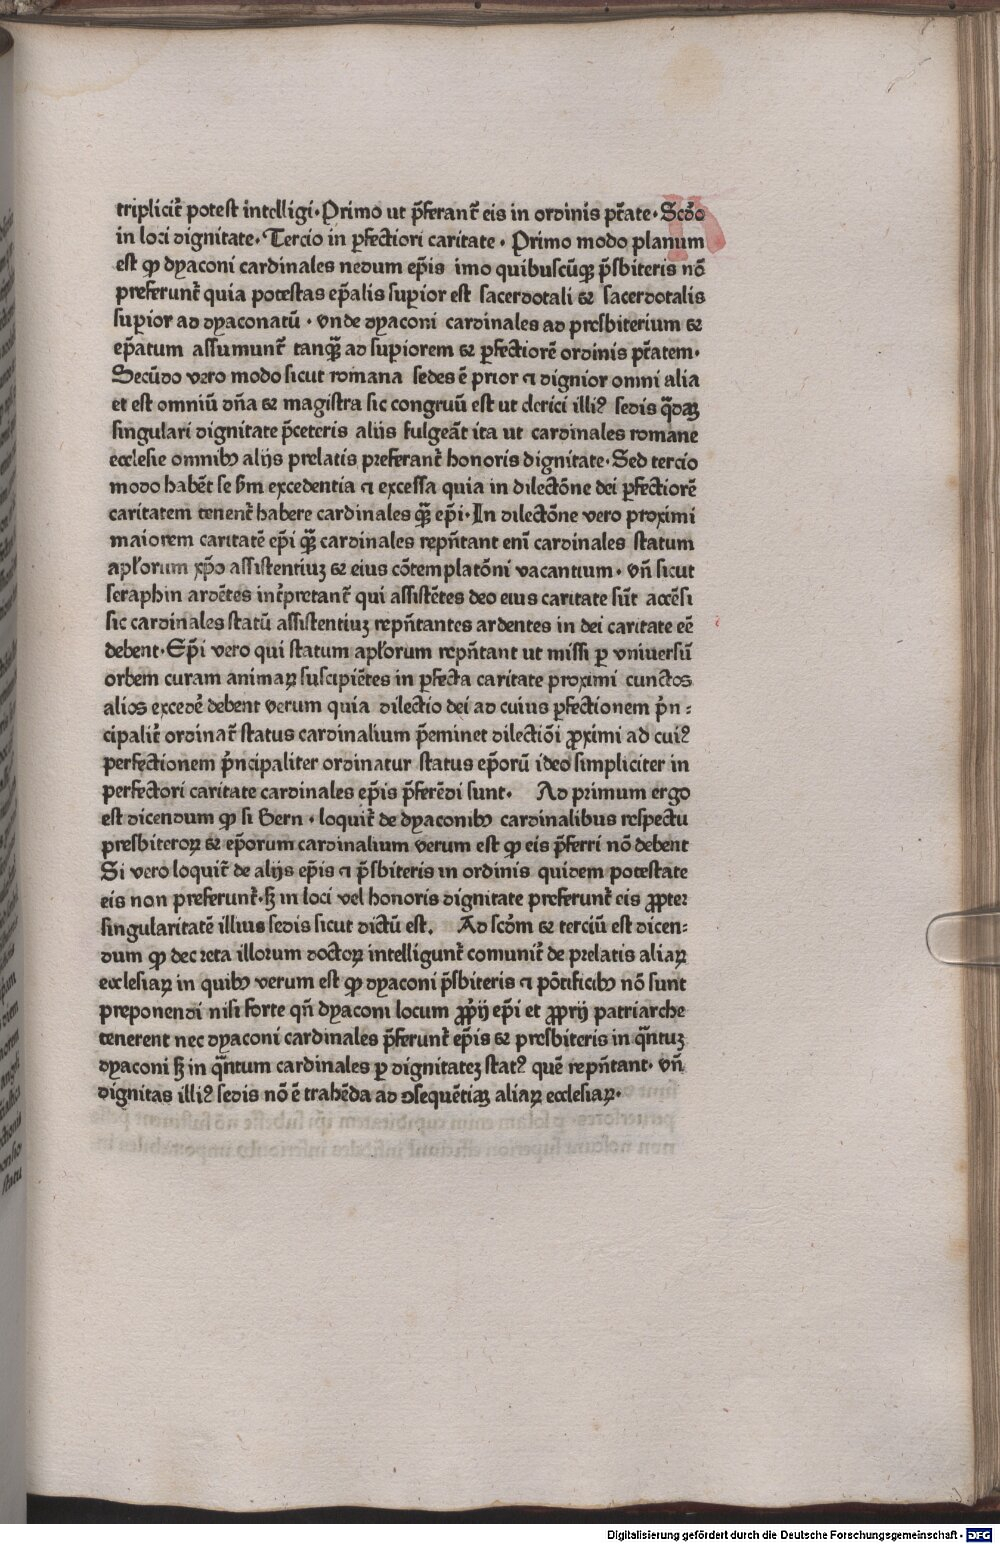 triplicit̃ potest intelligi·Primo ut p̃ferant̃ eis in ordinis pt̃ate·Scd̃o
in loci dignitate·Tercio in ꝑfectiori caritate · Primo modo planum
est ꝙ dyaconi cardinales nedum ep̃is imo quibuscũqꝫ p̃sbiteris nõ
preferunt̃ quia potestas ep̃alis suꝑior est sacerdotali ⁊ sacerdotalis
suꝑior ad dyaconatũ · vnde dyaconi cardinales ad presbiterium ⁊
ep̃atum assumunt̃ tanqꝫ̃ ad suꝑiorem ⁊ ꝑfectiorẽ ordinis pt̃atem·
Secũdo vero modo sicut romana sedes ẽ prior ⁊ dignior omni alia
et est omniũ dña ⁊ magistra sic congruũ est ut clerici illiꝰ sedis q̃daꝫ
singulari dignitate p̃ceteris aliis fulgeãt ita ut cardinales romane
ecclesie omnibꝫ alijs prelatis preferant̃ honoris dignitate·Sed tercio
modo habẽt se ẜm excedentia ⁊ excessa quia in dilectõne dei ꝑfectiorẽ
caritatem tenent̃ habere cardinales qꝫ̃ ep̃i·In dilectõne vero proximi
maiorem caritatẽ ep̃i qꝫ̃ cardinales repñtant eni cardinales statum
apl̃orum xp̃o assistentiuꝫ ⁊ eius cõtemplatõni vacantium· vñ sicut
seraphin ardẽtes int̃pretant̃ qui assistẽtes deo eius caritate sũt accẽsi
sic cardinales statũ assistentiuꝫ repñtantes ardentes in dei caritate eẽ
debent·Ep̃i vero qui statum apl̃orum repñtant ut missi ꝑ vniuersũ
orbem curam animaꝝ suscipiẽtes in ꝑfecta caritate proximi cunctos
alios excedẽ debent verum quia dilectio dei ad cuius ꝑfectionem p̃n⸗
cipalit̃ ordinat̃ status cardinalium p̃eminet dilectiõi ꝓximi ad cuiꝰ
perfectionem p̃ncipaliter ordinatur status ep̃orũ ideo simpliciter in
perfectori caritate cardinales ep̃is p̃ferẽdi sunt· Ad primum ergo
est dicendum ꝙ si Bern · loquit̃ de dyaconibꝫ cardinalibus respectu
presbiteroꝝ ⁊ ep̃orum cardinalium verum est ꝙ eis p̃ferri nõ debent
Si vero loquit̃ de alijs ep̃is ⁊ p̃sbiteris in ordinis quidem potestate
eis non preferunt̃·sꝫ in loci vel honoris dignitate preferunt̃ eis ꝓpter
singularitatẽ illius sedis sicut dictũ est. Ad scd̃m ⁊ terciũ est dicen⸗
dum ꝙ decreta illorum doctoꝝ intelligunt̃ comunit̃ de prelatis aliaꝝ
ecclesiaꝝ in quibꝫ verum est ꝙ dyaconi p̃sbiteris ⁊ põtificibꝫ nõ sunt
preponendi nisi forte qñ dyaconi locum ꝓp̃ij ep̃i et ꝓprij patriarche
tenerent nec dyaconi cardinales p̃ferunt̃ ep̃is ⁊ presbiteris in q̃ntuꝫ
dyaconi sꝫ in q̃ntum cardinales ꝑ dignitateꝫ statꝰ quẽ repñtant· vñ
dignitas illiꝰ sedis nõ ẽ trahẽda ad ꝯsequẽtiaꝫ aliaꝝ ecclesiaꝝ·
Digitalisierung gefördert durch die Deutsche Forschungsgemeinschaft - DFG